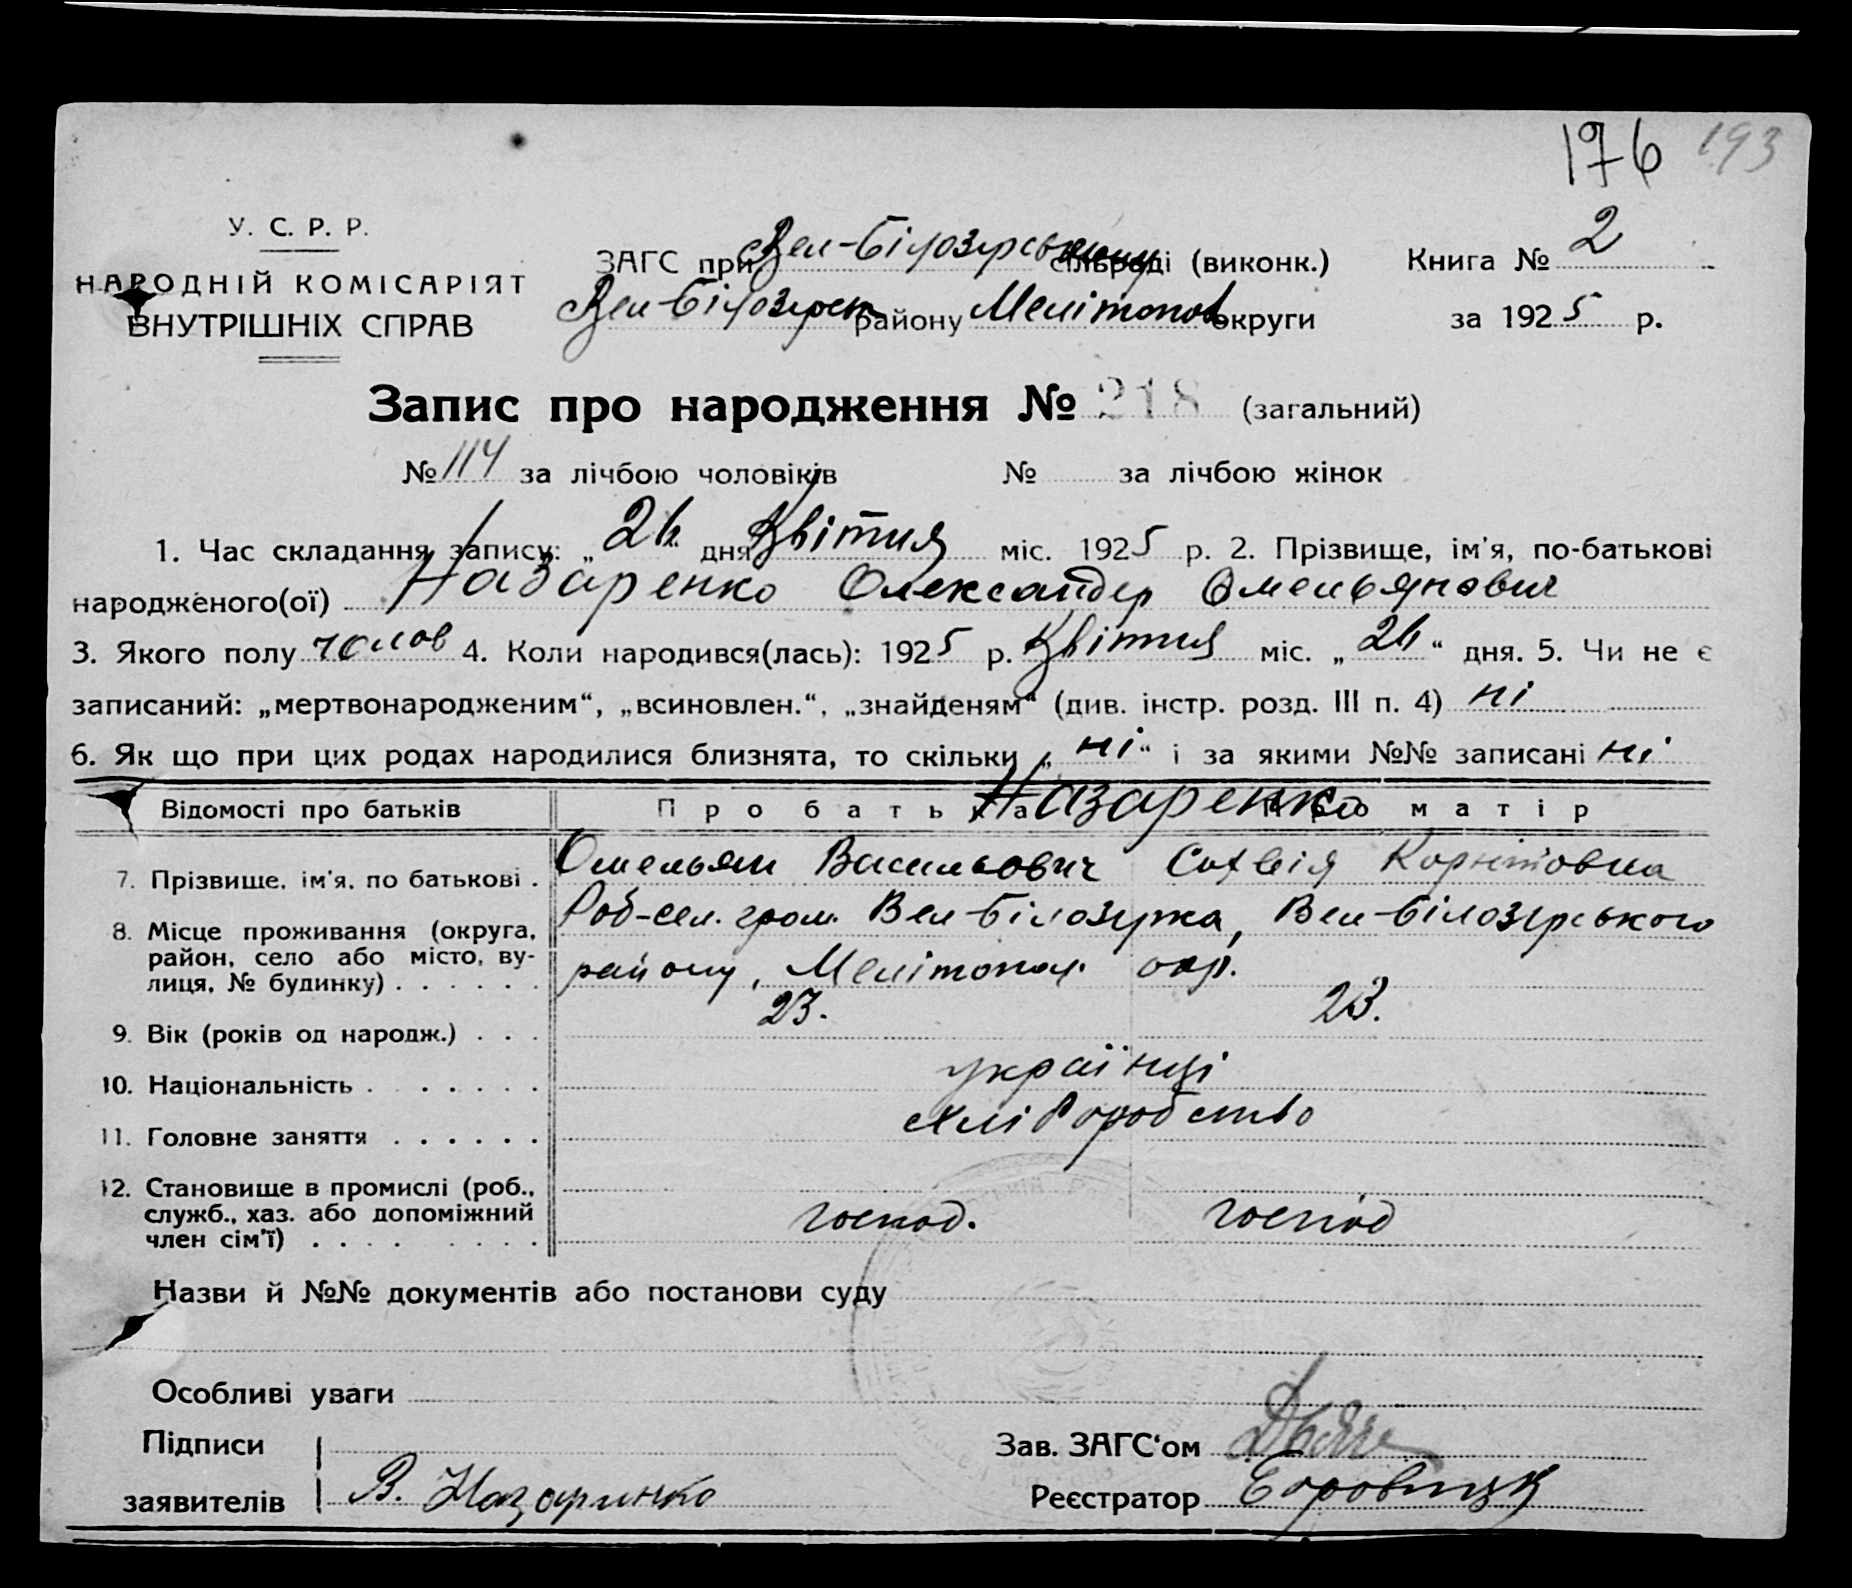 176 193
У. С. Р. Р.
НАРОДНІЙ КОМІСАРІЯТ
ВНУТРІШНІХ СПРАВ
ЗАГС при Вел-Білозерському сільраді (виконк.) Книга № 2
Вел-Білозерск району Мелітопов округи за 1925 р.
Запис про народження № 218 (загальний)
№ 114 за лічбою чоловіків № за лічбою жінок
1. Час складання запису: „26“ дня Квітня міс. 1925 р. 2. Прізвище, ім'я, по-батькові
народженого(ої) Назаренко Олександер Омельянович
3. Якого полу чолов 4. Коли народився(лась): 1925 р. Квітня міс. „26“ дня. 5. Чи не є
записаний: „мертвонародженим“, „всиновлен.“, „знайденям“ (див. інстр. розд. III п. 4) ні
6. Як що при цих родах народилися близнята, то скільки „ні“ і за якими №№ записані ні
Відомості про батьків Про батька Про матір
Назаренко
7. Прізвище, ім'я, по батькові . Омельян Васильович Софія
8. Місце проживання (округа, Роб-сел. гром. Вел-Білозерка, Вел-Білозерського
район, село або місто, ву-
лиця, № будинку) . . . . . . району, Мелітопол. окр.
9. Вік (років од народж.) . . . 23. 23.
10. Національність . . . . . . українці
11. Головне заняття . . . . . . хліборобство
12. Становище в промислі (роб.,
служб., хаз. або допоміжний
член сім'ї) . . . . . . . . господ. господ
Назви й №№ документів або постанови суду
Особливі уваги
Підписи
заявителів В. Назаринко
Зав. ЗАГС‘ом
Реєстратор